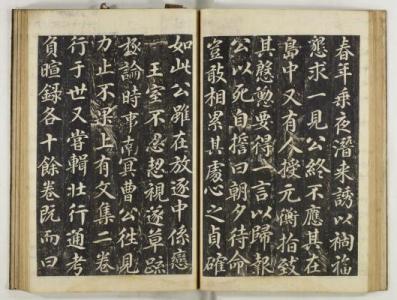 春年乘夜潛来誘以禍福
懇求一見公終不應其在
島中又有人授元衡指致
其慇懃要得一言以歸報
公以死自誓曰朝夕待命
豈敢相累其處心之貞確
如此公雖在放逐中係戀
一王室不忍恝視遂草疏
極論時事南冥曹公徃見
力止不果上有文集二卷
行于世又甞輯壯行通考
負暄録各十餘卷既而曰